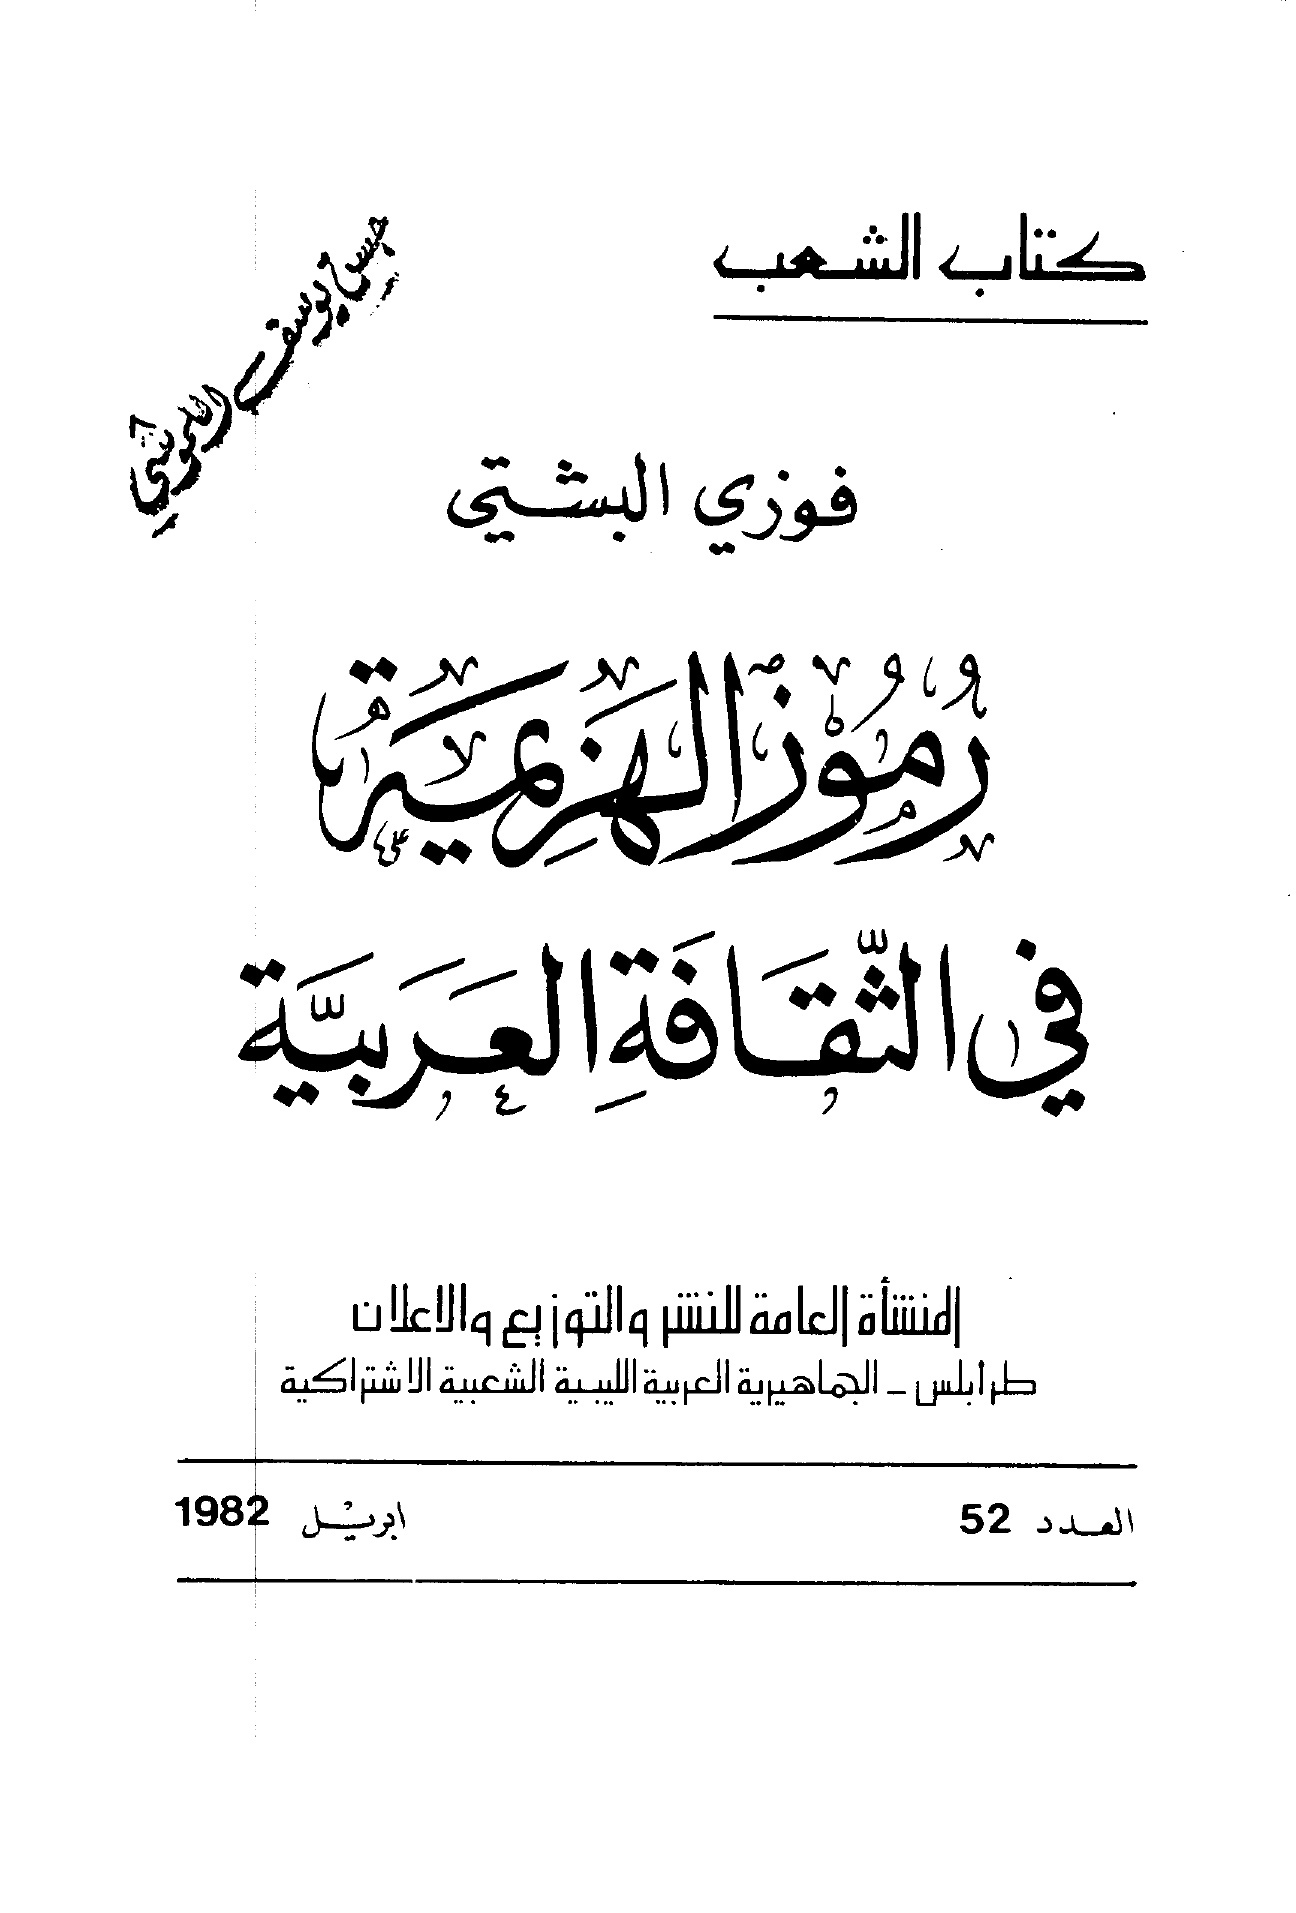 كتاب الشعب
يوسف
فوزي البشتي
رُمُوْزُ الهَزِيمَةِ
فِي الثَّقَافَةِ العَرَبِيَّة
المنشأة العامة للنشر والتوزيع والاعلان
طرابلس - الجماهيرية العربية الليبية الشعبية الاشتراكية
العدد 52
ابريل 1982